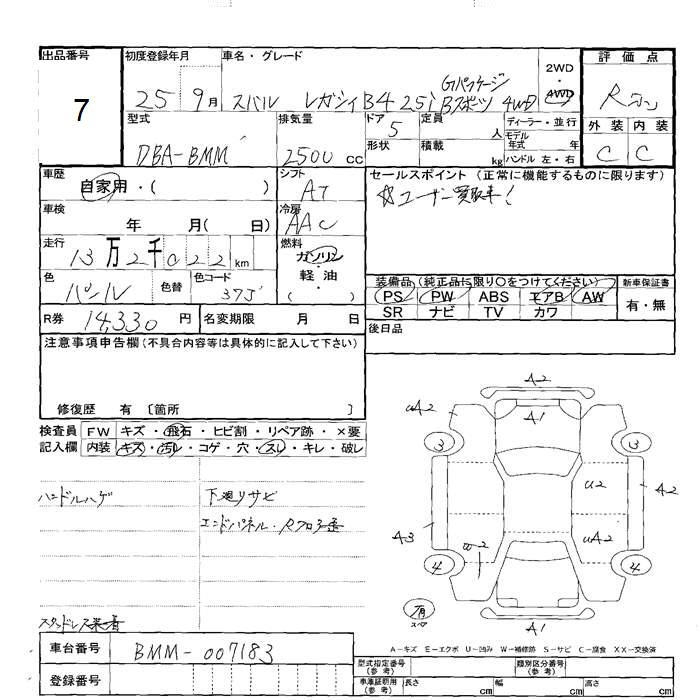 出品番号
7
初度登録年月
25 9月
車名・グレード
スバル レガシィB4 2.5i Gパッケージ
Bスポーツ 4WD
2WD
・
4WD
評価点
R
型式
DBA-BMM
排気量
2500 cc
ドア
5
形状
定員
人
積載
kg
ディーラー・並行
モデル
年式 年
ハンドル 左・右
外装 内装
C C
車歴
自家用・( )
シフト
AT
セールスポイント (正常に機能するものに限ります)
ユーザー買取車!
車検
年 月( 日)
冷房
AAC
走行
13万2千022km
燃料
ガソリン
・
軽油
・
( )
色
パール
色替
色コード
37J
装備品 (純正品に限り○をつけてください)
PS PW ABS エアB AW
SR ナビ TV カワ
新車保証書
有・無
R券 14,330 円
名変期限 月 日
後日品
注意事項申告欄 (不具合内容等は具体的に記入して下さい)
修復歴 有 〔箇所 〕
検査員
記入欄
FW キズ・飛石・ヒビ割・リペア跡・×要
内装 キズ・汚レ・コゲ・穴・スレ・キレ・破レ
ハンドルハゲ
下廻りサビ
エンドパネル・Rフロア歪
スタッドレス装着
A2
A1
uA2
3
3
U2
A2
A3
w2
uA2
4
4
有
スペア
A1
A-キズ E-エクボ U-凹み W-補修跡 S-サビ C-腐食 XX-交換済
車台番号
BMM-007183
登録番号
型式指定番号
(参考)
類別区分番号
(参考)
車庫証明用
(参考)
長さ cm
幅 cm
高さ cm